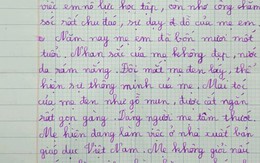 việc em nỗ lực học tập, con nhờ công chăm
sóc rất chu đáo, sự dạy dỗ của mẹ em.
Năm nay mẹ em đã bốn mươi mốt
tuổi. Nhan sắc của mẹ không đẹp, nước
da rám nắng. Đôi mắt mẹ đen láy, thể
hiện sự thông minh của mẹ. Mái tóc
của mẹ đen như gỗ mun, được cắt ngắn
rất gọn gàng. Dáng người mẹ tầm thước.
Mẹ hiện đang làm việc ở nhà xuất bản
giáo dục Việt Nam. Mẹ không giỏi nấu